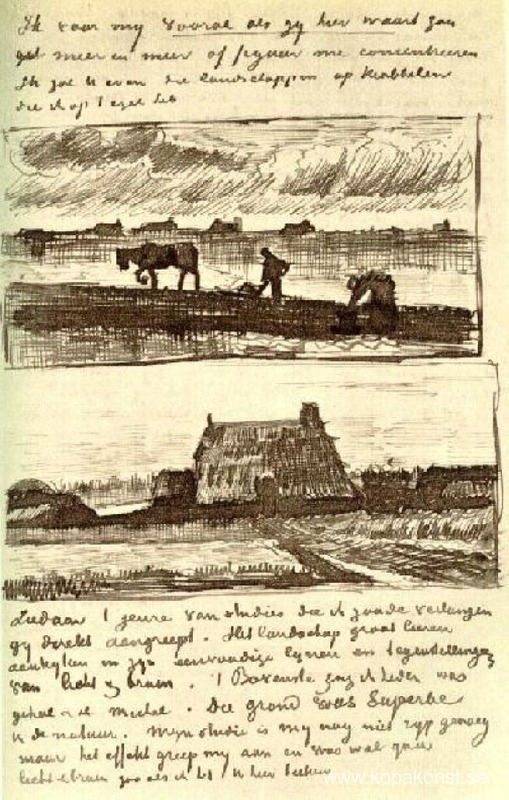 Ik voor my vooral als gy hier waart zou
meer en meer op figuur me concentreeren
Ik zal U even de landschappen op krabbelen
die ik op l'ezel heb
Ziedaar 't genre van studies die ik zoude verlangen
gy direkt aangreept. Het landschap groot leeren
aankyken in zyn eenvoudige lynen en tegenstellingen
van licht & bruin. 't Bovenste zag ik heden was
geheel à la Michel. Die grond was superbe
in de natuur. Myn studie is my nog niet ryp genoeg
maar het effekt greep my aan en was wel qua
licht & bruin zoo als ik het U hier teeken
www.kopakonst.se